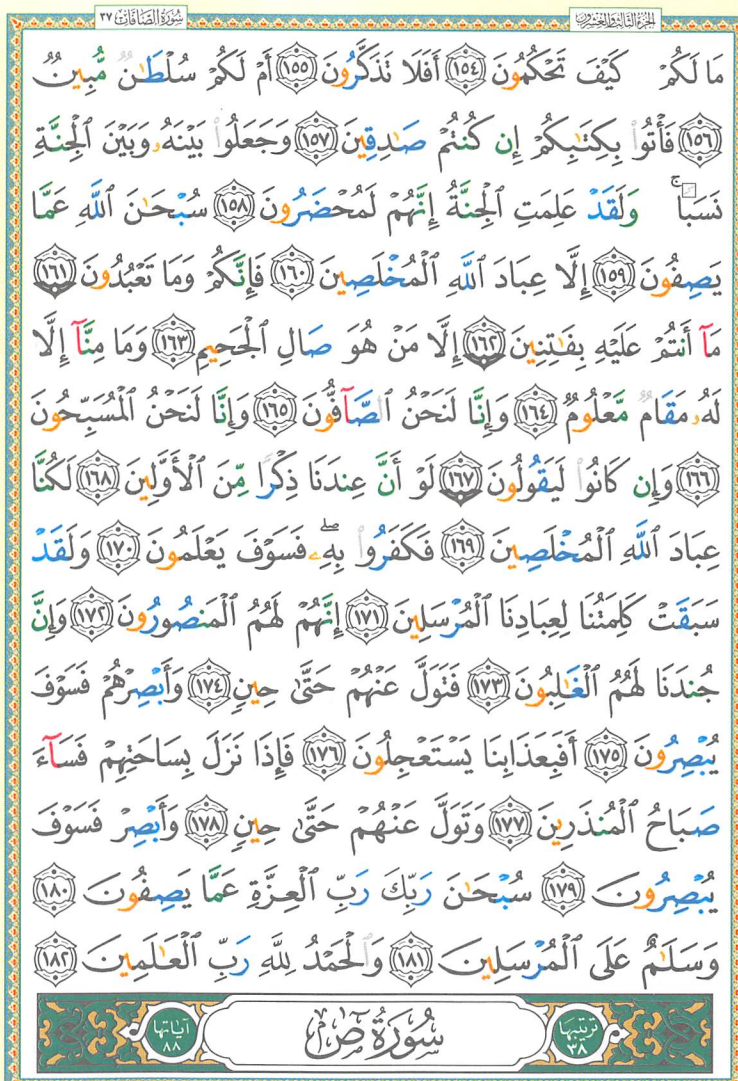 سُورَةُ الصَّافَّاتِ ٣٧
الجُزْءُ الثَّالِثُ وَالعِشْرُونَ
مَا لَكُمْ كَيْفَ تَحْكُمُونَ ١٥٤ أَفَلَا تَذَكَّرُونَ ١٥٥ أَمْ لَكُمْ سُلْطَٰنٌ مُّبِينٌ
١٥٦ فَأْتُوا۟ بِكِتَٰبِكُمْ إِن كُنتُمْ صَٰدِقِينَ ١٥٧ وَجَعَلُوا۟ بَيْنَهُۥ وَبَيْنَ ٱلْجِنَّةِ
نَسَبًا ۚ وَلَقَدْ عَلِمَتِ ٱلْجِنَّةُ إِنَّهُمْ لَمُحْضَرُونَ ١٥٨ سُبْحَٰنَ ٱللَّهِ عَمَّا
يَصِفُونَ ١٥٩ إِلَّا عِبَادَ ٱللَّهِ ٱلْمُخْلَصِينَ ١٦٠ فَإِنَّكُمْ وَمَا تَعْبُدُونَ ١٦١
مَآ أَنتُمْ عَلَيْهِ بِفَٰتِنِينَ ١٦٢ إِلَّا مَنْ هُوَ صَالِ ٱلْجَحِيمِ ١٦٣ وَمَا مِنَّآ إِلَّا
لَهُۥ مَقَامٌ مَّعْلُومٌ ١٦٤ وَإِنَّا لَنَحْنُ ٱلصَّآفُّونَ ١٦٥ وَإِنَّا لَنَحْنُ ٱلْمُسَبِّحُونَ
١٦٦ وَإِن كَانُوا۟ لَيَقُولُونَ ١٦٧ لَوْ أَنَّ عِندَنَا ذِكْرًا مِّنَ ٱلْأَوَّلِينَ ١٦٨ لَكُنَّا
عِبَادَ ٱللَّهِ ٱلْمُخْلَصِينَ ١٦٩ فَكَفَرُوا۟ بِهِۦ ۖ فَسَوْفَ يَعْلَمُونَ ١٧٠ وَلَقَدْ
سَبَقَتْ كَلِمَتُنَا لِعِبَادِنَا ٱلْمُرْسَلِينَ ١٧١ إِنَّهُمْ لَهُمُ ٱلْمَنصُورُونَ ١٧٢ وَإِنَّ
جُندَنَا لَهُمُ ٱلْغَٰلِبُونَ ١٧٣ فَتَوَلَّ عَنْهُمْ حَتَّىٰ حِينٍ ١٧٤ وَأَبْصِرْهُمْ فَسَوْفَ
يُبْصِرُونَ ١٧٥ أَفَبِعَذَابِنَا يَسْتَعْجِلُونَ ١٧٦ فَإِذَا نَزَلَ بِسَاحَتِهِمْ فَسَآءَ
صَبَاحُ ٱلْمُنذَرِينَ ١٧٧ وَتَوَلَّ عَنْهُمْ حَتَّىٰ حِينٍ ١٧٨ وَأَبْصِرْ فَسَوْفَ
يُبْصِرُونَ ١٧٩ سُبْحَٰنَ رَبِّكَ رَبِّ ٱلْعِزَّةِ عَمَّا يَصِفُونَ ١٨٠
وَسَلَٰمٌ عَلَى ٱلْمُرْسَلِينَ ١٨١ وَٱلْحَمْدُ لِلَّهِ رَبِّ ٱلْعَٰلَمِينَ ١٨٢
ترتيبها ٣٨
سُورَةُ صٓ
آياتها ٨٨